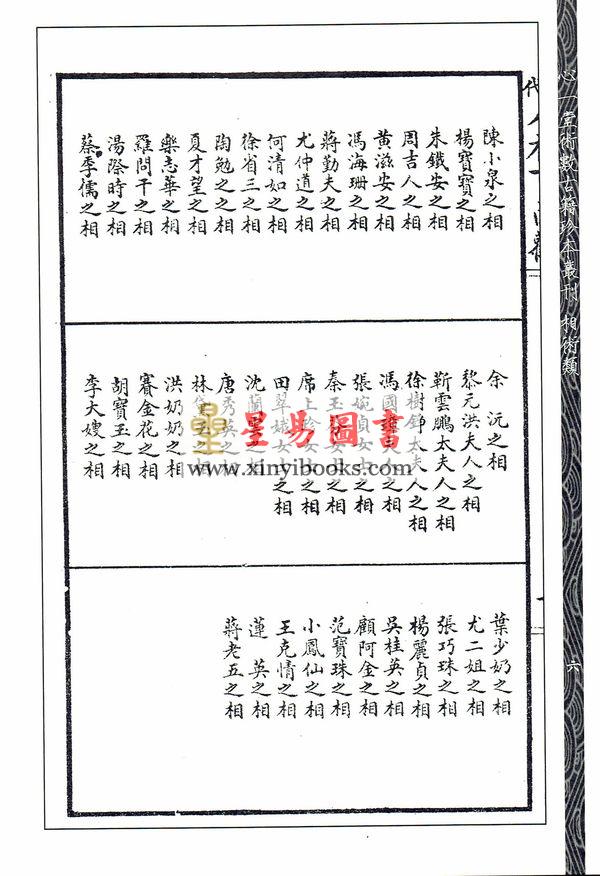 心一堂術數古籍珍本叢刊 相術類
六
陳小泉之相
楊寶寶之相
朱鐵安之相
周吉人之相
黃滋安之相
馮海珊之相
蔣勤夫之相
尤仲道之相
何清如之相
徐省三之相
陶勉之之相
夏才望之相
樂志華之相
羅問干之相
湯際時之相
蔡季儒之相
余沅之相
黎元洪夫人之相
靳雲鵬太夫人之相
徐樹錚太夫人之相
馮國璋夫人之相
張婉貞女士之相
秦玉女士之相
席上珍女士之相
田翠女士之相
沈蘭之相
唐秀英之相
林黛玉之相
洪奶奶之相
賽金花之相
胡寶玉之相
李大嫂之相
葉少奶之相
尤二姐之相
張巧珠之相
楊麗貞之相
吳桂英之相
顧阿金之相
范寶珠之相
小鳳仙之相
王克情之相
蓮英之相
蔣老五之相
星易圖書
www.xinyibooks.com